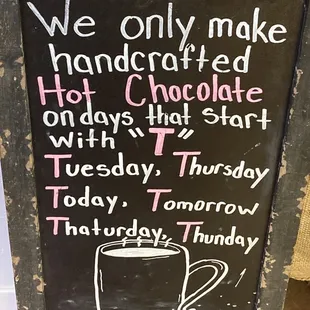 We only make
handcrafted
Hot Chocolate
on days that start
with "T"
Tuesday, Thursday
Today, Tomorrow
Thaturday, Thunday